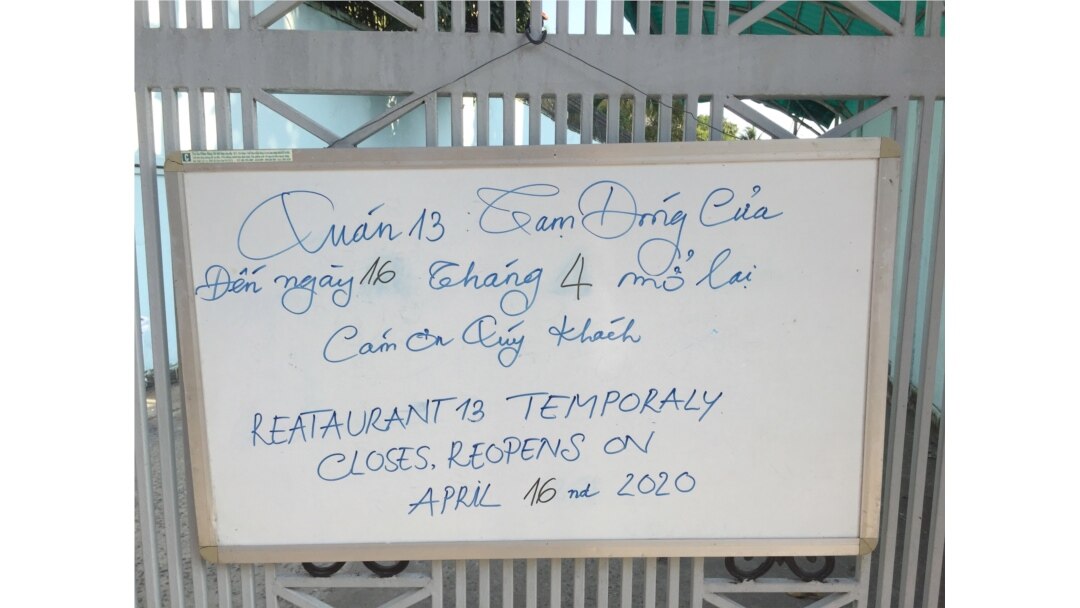 Quán 13 Tạm Đóng Cửa
Đến ngày 16 Tháng 4 mở lại
Cám ơn Quý Khách
REATAURANT 13 TEMPORALY
CLOSES, REOPENS ON
APRIL 16 nd 2020